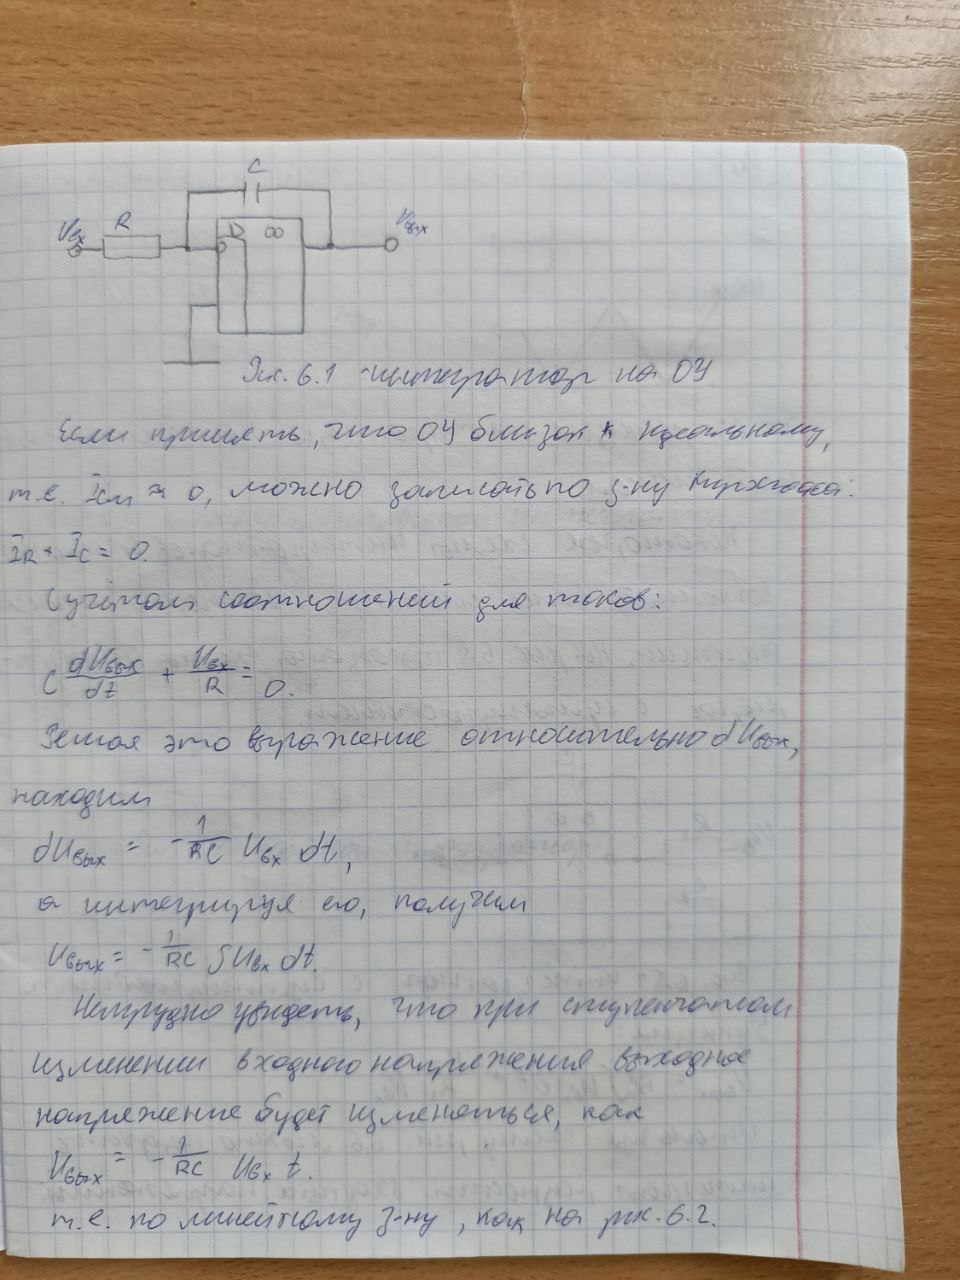 C
Uвх R ▷ ∞ Uвых
Рис. 6.1 - интегратор на ОУ
Если принять, что ОУ близок к идеальному,
т.е. Iсм ≈ 0, можно записать по з-ну Кирхгофа:
IR + IC = 0.
С учётом соотношений для токов:
C dUвых/dt + Uвх/R = 0.
Решая это выражение относительно dUвых,
находим
dUвых = -1/RC Uвх dt,
а интегрируя его, получим
Uвых = -1/RC ∫Uвх dt.
Нетрудно увидеть, что при ступенчатом
изменении входного напряжения выходное
напряжение будет изменяться, как
Uвых = -1/RC Uвх t.
т.е. по линейному з-ну, как на рис. 6.2.